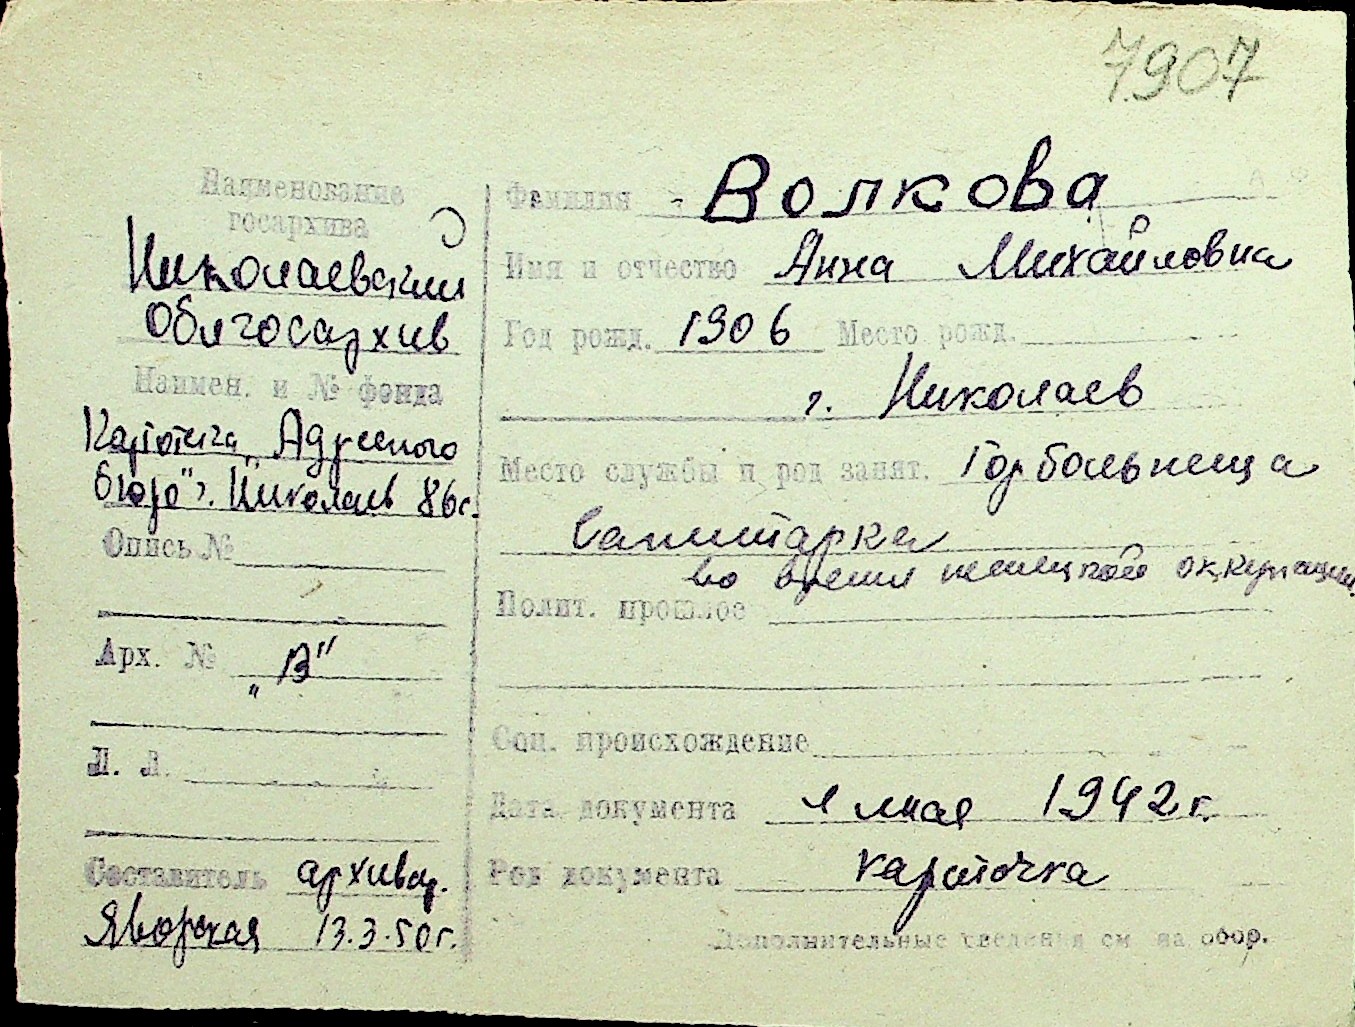 7907
Наименование
госархива
Николаевский
Облгосархив
Наимен. и № фонда
Картотека „Адресного
бюро" г. Николаев 86г.
Опись №
Арх. № „В"
Л. Л.
Составитель архивар.
Яворская 13.3.50г.
Фамилия Волкова
Имя и отчество Анна Михайловна
Год рожд. 1906 Место рожд.
г. Николаев
Место службы и род занят. Горбольница
Санитарка
во время немецкой оккупации.
Полит. прошлое
Соц. происхождение
Дата документа 1 мая 1942г.
Род документа карточка
Дополнительные сведения см на обор.